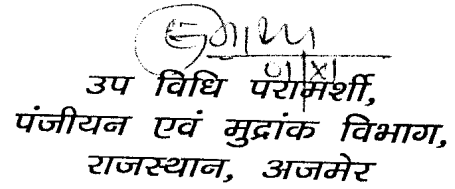 उप विधि परामर्शी,
पंजीयन एवं मुद्रांक विभाग,
राजस्थान, अजमेर